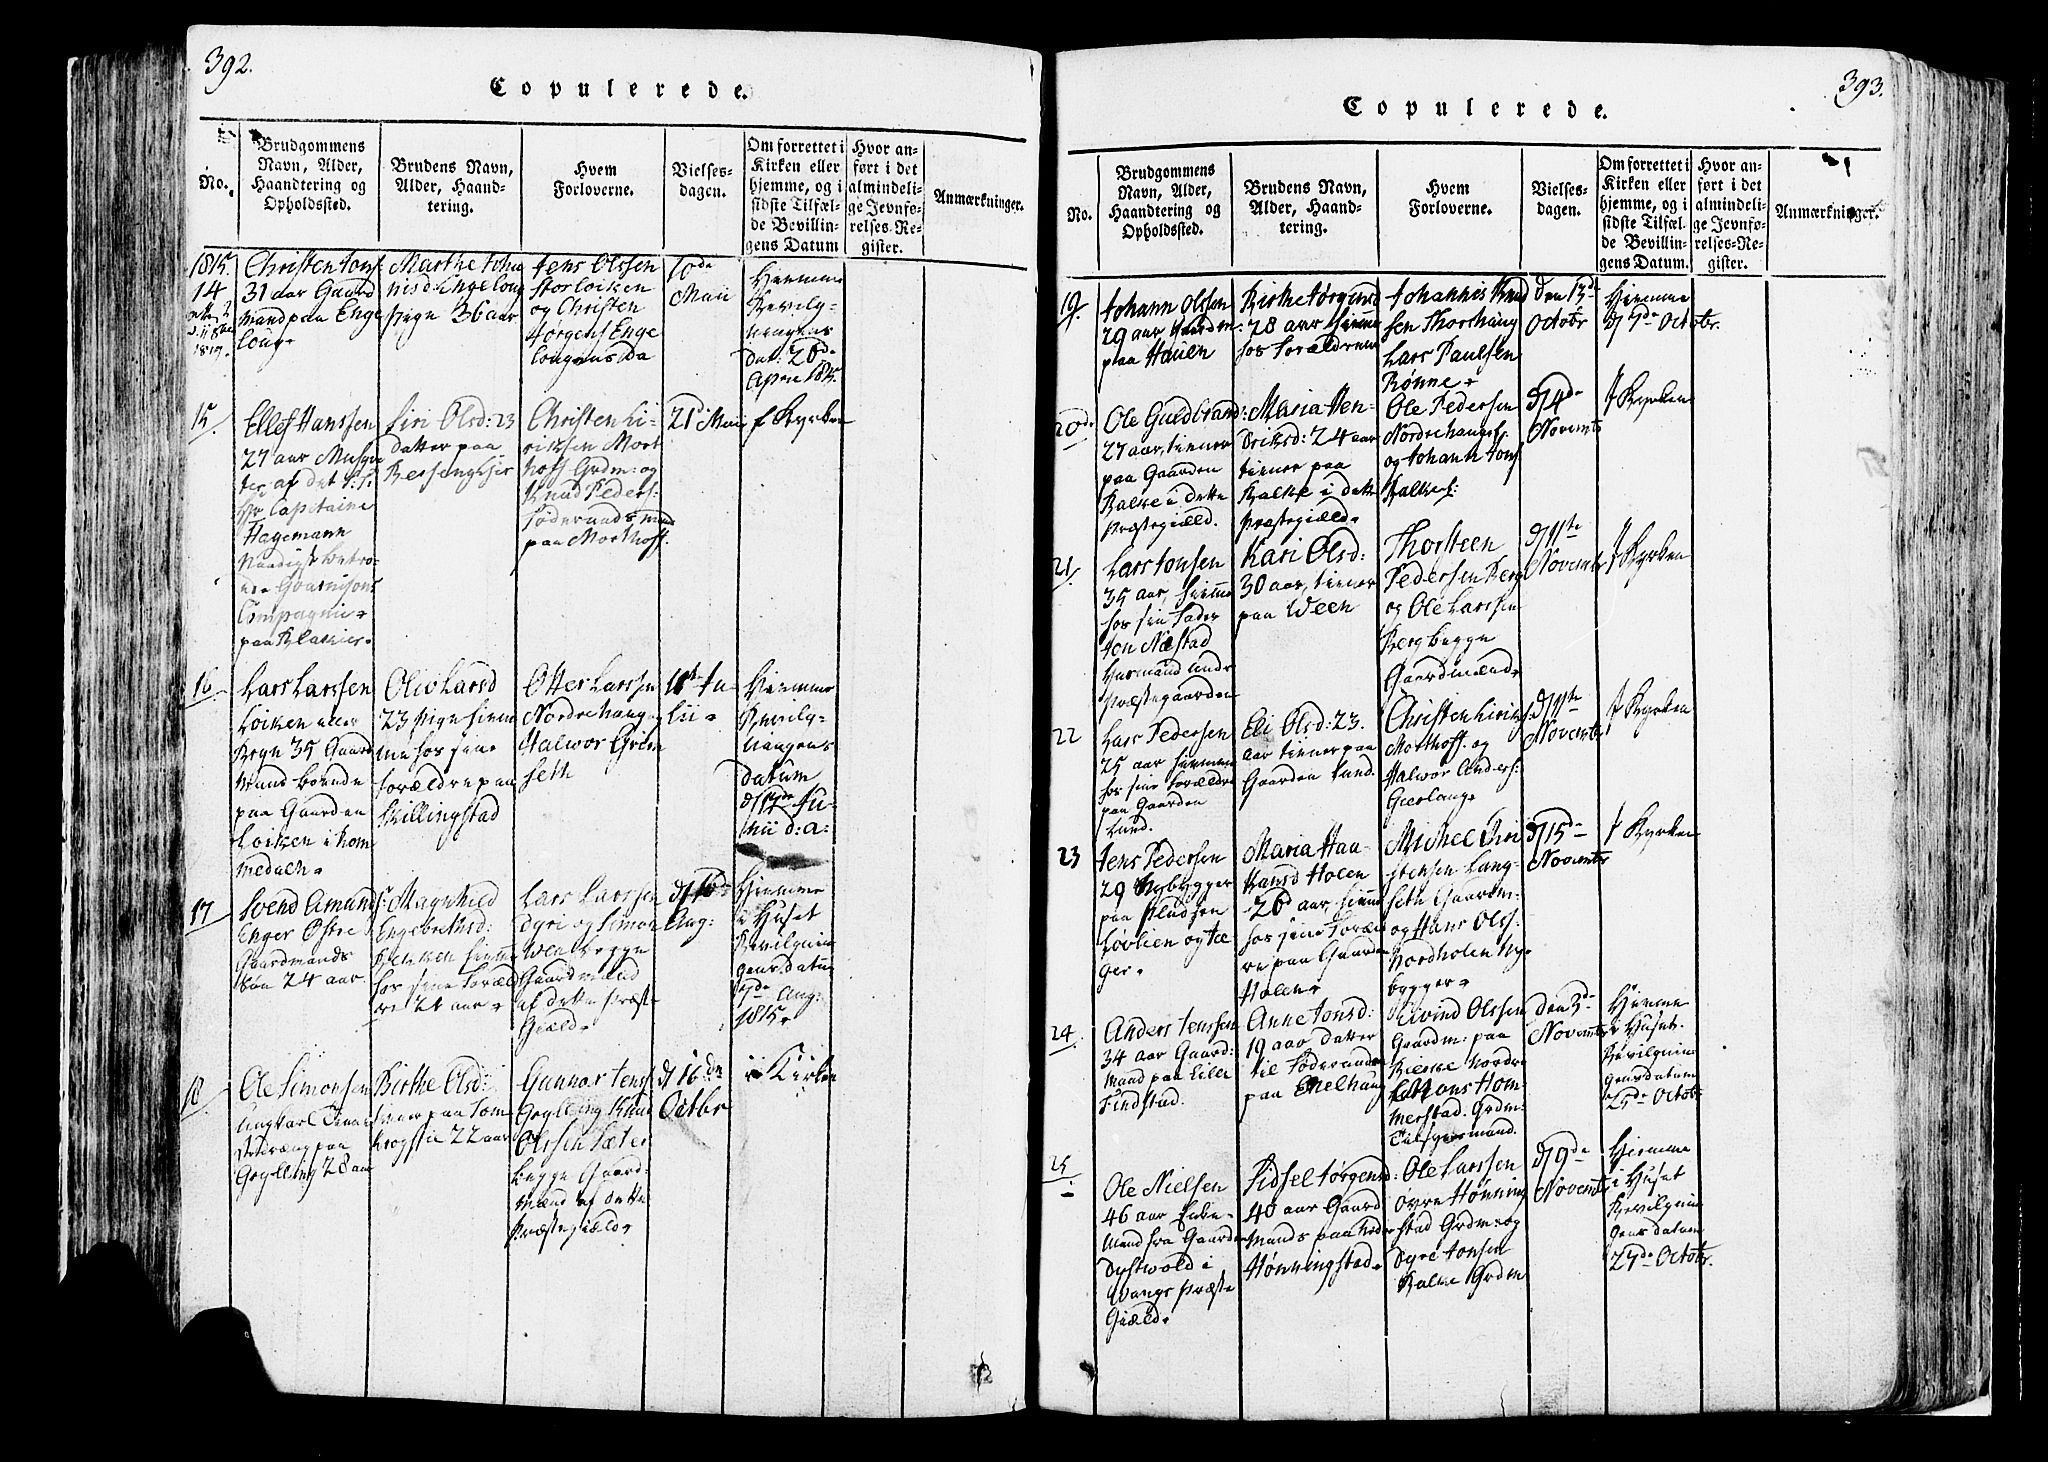 392.
Copulerede.
No.
Brudgommens
Navn, Alder,
Haandtering og
Opholdssted.
Brudens Navn,
Alder, Haand-
tering.
Hvem
Forloverne.
Vielses-
dagen.
Om forrettet i
Kirken eller
hjemme, og i
sidste Tilfæl-
de Bevillin-
gens Datum
Hvor an-
ført i det
almindeli-
ge Jevnfø-
relses-Re-
gister.
Anmærkninger.
1815.
14
1819.
Christen Jons:
31 aar Gaard
mand paa Enge
loug.
Marthe Joha
nisd: Engeloug
pige 36 aar
Jens Olssen
Storloiken
og Christen
Jørgens: Enge
10de
Maii
Hiemme
Bevilg-
ningens
dat: 26de
April 1815.
15.
Ellef Hanssen
27 aar Musque
ter af det
Hr Capitaine
Hagemann
Compagnie
Siri Olsd: 23
datter paa
Christen Ei-
riksen Mort
hoff Grdm: og
Knud Peders:
Føderaadsmand
paa Morthoff.
21de Maii
i Kyrken
16
Lars Larssen
Loiken eller
Bryn 35 Gaard
mand boende
paa Gaarden
Loiken i Rom
medalen.
Olio Larsd
23 Pige hiem
me hos sine
forældre paa
Skillingstad
Otter Larssen
Nordrehaug og
Halwor Grim
seth
Ju-
lii.
Hiemme
Bevilg-
ningens
datum
d: 17de Ju-
nii d: a:
17
Svend Amund
Enger Østre
Gaardmands
søn 24 aar
Magnhild
Engebrethsd:
Bekken hiemme
hos sine Foræld
re 21 aar.
Lars Larssen
Dyri og Simon
Ween begge
Gaardmænd
af dette præste
Gield.
d: 10de
Aug:
Hiemme
i Huset
Bevilgnin
gens datum
7de Aug:
1815.
18
Ole Simonsen
Ungkarl tiener
paa
Grylling 28 aar
Birthe Olsd:
tiener paa
22 aar
Gunnar Jens
Grylling Knud
Olssen Sæter
begge Gaard-
mænd af dette
Præstegield.
d: 16de
Octbr
i Kirken
393.
Copulerede.
No.
Brudgommens
Navn, Alder,
Haandtering og
Opholdssted.
Brudens Navn,
Alder, Haand-
tering.
Hvem
Forloverne.
Vielses-
dagen.
Om forrettet i
Kirken eller
hjemme, og i
sidste Tilfæl-
de Bevillin-
gens Datum.
Hvor an-
ført i det
almindeli-
ge Jevnfø-
relses-Re-
gister.
Anmærkninger.
19.
Johann Olssen
29 aar Gaardm:
paa Hauen
Birthe Jørgensd
28 aar hiemme
hos Forældrene
Johannis Knud
sen Thorshaug
Lars Paulsen
Rønne.
den 13de
Octobr
Hiemme
d: 7de Octobr.
20de
Ole Guldbrand:
27 aar, tiener
paa Gaarden
Kalke i dette
Præstegield.
Maria Hen-
driksd: 24 aar
tiener paa
Kalke i dette
præstegield.
Ole Pedersen
Nordrehaugs:
og Johann Jons
Kalke:
d: 4de
Novembr
i Kyrken
21.
Lars Jonsen
35 aar, hiemme
hos sin Fader
Jon Næstad
Husmand under
præstegaarden
Kari Olsd:
30 aar, tiener
paa Ween
Thorsteen
Pedersen Berg
og Ole Larssen
Berg begge
Gaardmænd.
d: 11te
Novembr
i Kyrken
22
Lars Pedersen
25 aar hiemme
hos sine Forældre
paa Gaarden
Lund.
Eli Olsd: 23.
aar tiener paa
Gaarden Lund.
Christen Eiriks:
Morthoff. og
Halwor Anders:
Geerlaug.
d: 11te
Novembr
i Kyrken
23
Jens Pedersen
29 Nybygger
paa Pladsen
Løvlien og Jæ
ger.
Maria Haa-
kansd Holen
26 aar, hiemme
hos sine Foræld
re paa Gaarden
Holen.
Michel Chri
stensen Lang-
seth Gaardm-
og Hans Ols:
Nordholen Ny-
bygger.
d: 15de
Novembr
i Kyrken
24.
Anders Jenssen
34 aar Gaard:
Mand paa Eiler
Findstad.
Anne Jonsd:
19 aar datter
til Føderaaden
paa
Eivind Olssen
Gaardm: paa
Nordre
Hom-
merstad. Grdm:
den 3de
Novembr
Hiemme
i Huset.
Bevilgnin
gens datum
25de Octobr
25
Ole Nielsen
46 aar Enke-
Mand fra Gaarden
Dystwold i
Wangs præste
Gield.
Sidsel Jørgensd:
40 aar Gaard
Mands paa Nedre
Hønningstad.
Ole Larssen
Øvre Hønning
stad Grdm: og
Dyre Jonsen
Kalke Grdm
d: 9de
Novembr
Hiemme
i Huset
Bevilgnin
gens datum
27de Octobr.